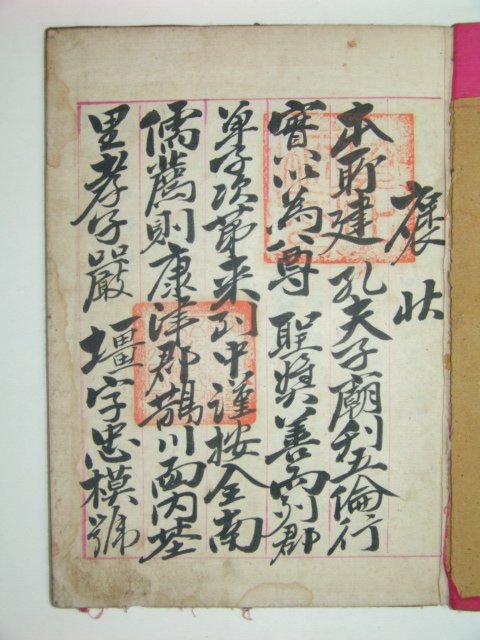 褒狀
本所建 孔夫子廟刊五倫行
實以爲尊 聖奬善而列郡
單子次第来到中謹按全南
儒薦則康津郡鵲川面内基
里孝子嚴 壃字忠模號